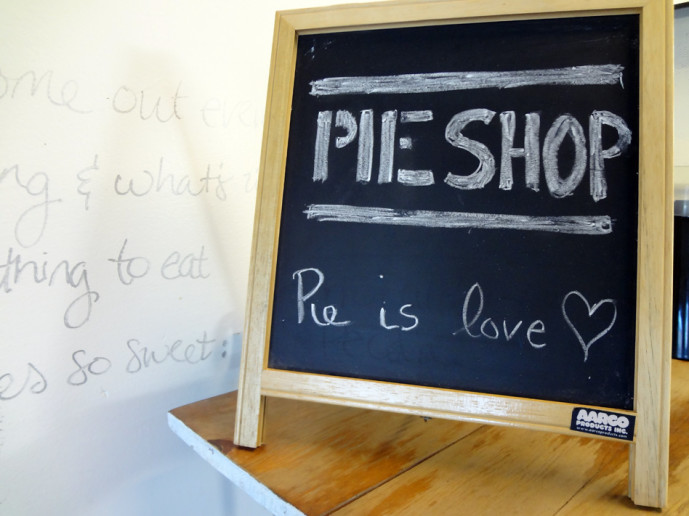 PIE SHOP
Pie is love
AARCO
PRODUCTS INC.
www.aarcoproducts.com
ome out eve
ng & what's
thing to eat
es so sweet: